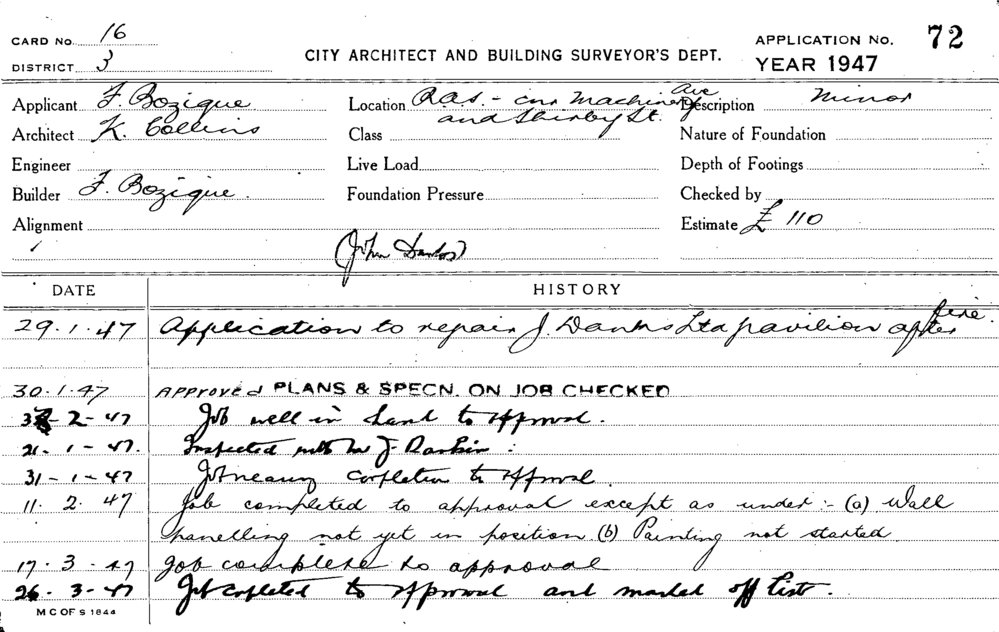 CARD No. 16
DISTRICT 3
CITY ARCHITECT AND BUILDING SURVEYOR'S DEPT.
APPLICATION No. 72
YEAR 1947
Applicant F. Bozique
Architect K. Collins
Engineer
Builder F. Bozique.
Alignment
Location R.A.S. - cnr Machinery Ave
and Shirley St.
Class
Live Load
Foundation Pressure
(John Danks)
Description Minor
Nature of Foundation
Depth of Footings
Checked by
Estimate £ 110
DATE HISTORY
29.1.47 Application to repair J. Danks Ltd pavilion after fire.
30.1.47 Approved PLANS & SPECN. ON JOB CHECKED
2-47 Job well in hand to approval.
21-1-47. Inspected with Mr J. Rankin.
31-1-47 Job nearing completion to approval.
11.2.47 Job completed to approval except as under:- (a) Wall
panelling not yet in position (b) Painting not started.
17.3.47 Job complete to approval
26-3-47 Job completed to approval and marked off list.
M C OF S 1844